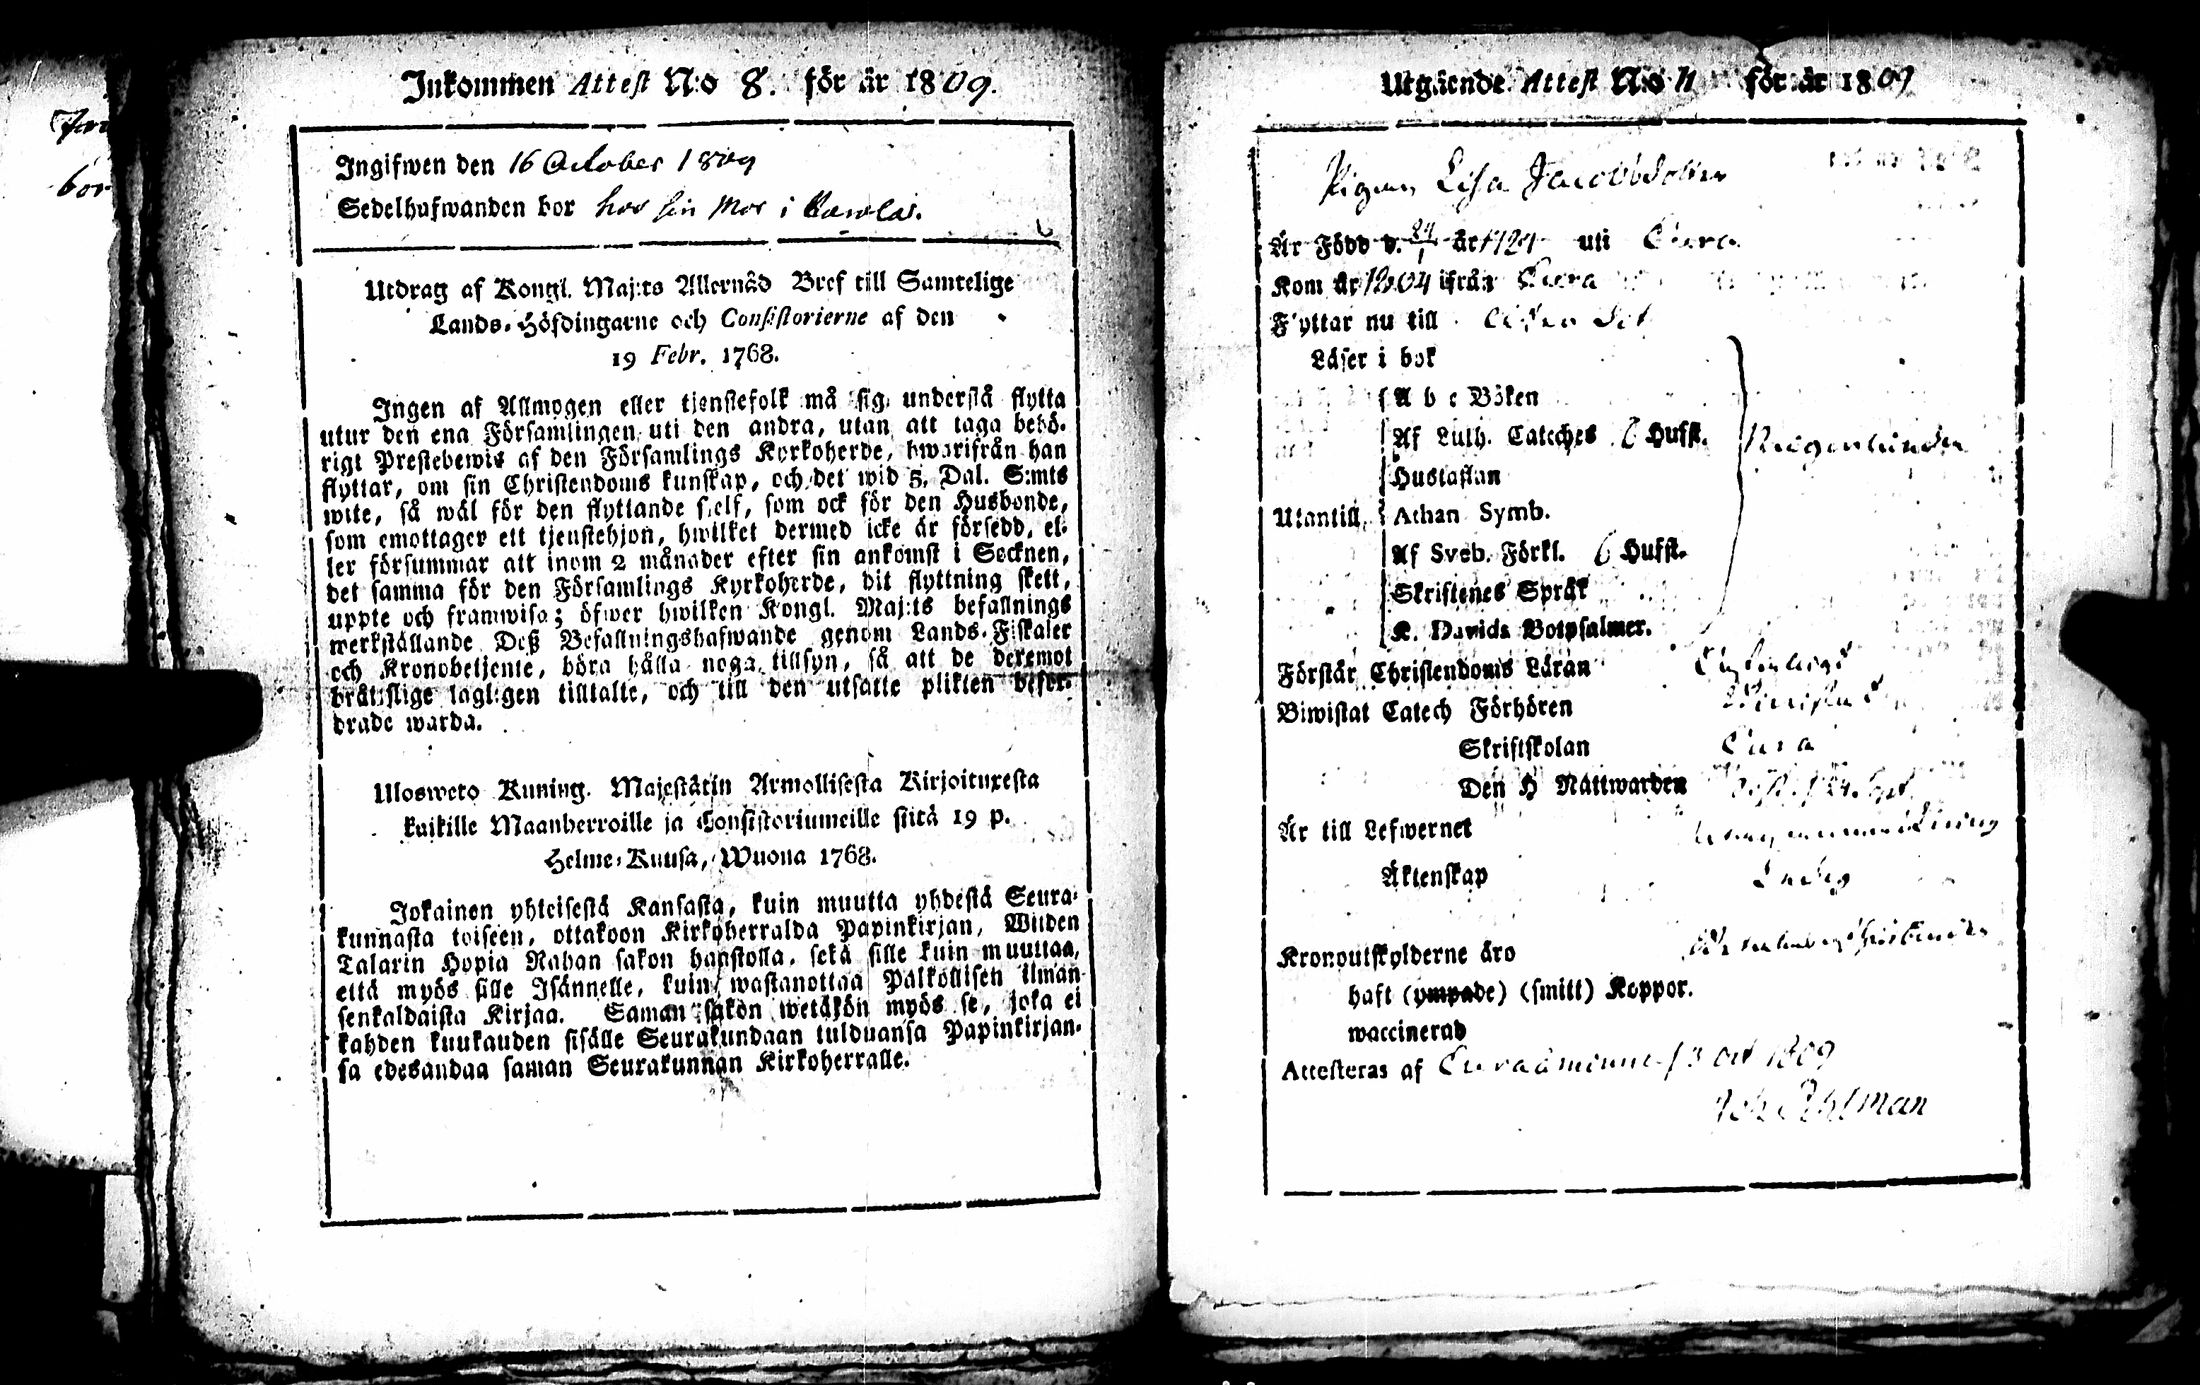 Inkommen Attest N:o 8. för år 1809.
Ingifwen den 16 October 1809
Sedelhafwanden bor hos sin Mor i
Utdrag af Kongl. Maj:ts Allernåd Bref till Samtelige
Lands-Höfdingarne och Consistorierne af den
19 Febr. 1768.
Ingen af Allmogen eller tjenstefolk må sig understå flytta
utur den ena Församlingen uti den andra, utan att taga behö-
rigt Prestebewis af den Församlings Kyrkoherde, hwarifrån han
flyttar, om sin Christendoms kunskap, och det wid 5. Dal. S:mts
wite, så wäl för den flyttande sielf, som ock för den Husbonde,
som emottager ett tjenstehjon, hwilket dermed icke är försedd, el-
ler försummar att inom 2 månader efter sin ankomst i Socknen,
det samma för den Församlings Kyrkoherde, dit flyttning skett,
uppte och framwisa; öfwer hwilken Kongl. Maj:ts befallnings
werkställande Deß Befallningshafwande genom Lands-Fiskaler
och Kronobetjente, böra hålla noga tillsyn, så att de deremot
bråtslige lagligen tilltalte, och till den utsatte plikten befor-
drade warda.
Ulosweto Kuning. Majestätin Armollisesta Kirjoituxesta
kaikille Maanherroille ja Consistoriumeille siitä 19 p.
Helme-Kuusa, Wuona 1768.
Jokainen yhteisestä Kansasta, kuin muutta yhdestä Seura-
kunnasta toiseen, ottakoon Kirkoherralda Papinkirjan, Wiiden
Talarin Hopia Rahan sakon haastolla, sekä sille kuin muuttaa,
että myös sille Isännelle, kuin wastanottaa Palkollisen ilman
senkaldaista Kirjaa. Saman sakon wetäkön myös se, joka ei
kahden kuukauden sisälle Seurakundaan tulduansa Papinkirjan-
sa edesandaa saman Seurakunnan Kirkoherralle.
Utgående Attest N:o 11 för år 1809
Pigan Lisa Jacobsdotter
Är Född d. 24/1 år uti Eura
Kom år 1804 ifrån Eura
Flyttar nu till
Läser i bok
A b c Boken
Af Luth. Cateches 6 Hufst.
Hustaflan
Utantill Athan Symb.
Af Sveb. Förkl. 6 Hufst.
Skriftenes Språk
K. Davids Botpsalmer.
Förstår Christendoms Läran
Biwistat Catech Förhören
Skriftskolan Eura
Den H Nattwarden Sept
Är till Lefwernet
Äktenskap Ledig
Kronoutskylderne äro
haft (ympade) (smitt) Koppor.
waccinerad
Attesteras af Euraåminne 13 Oct 1809
Ahlman